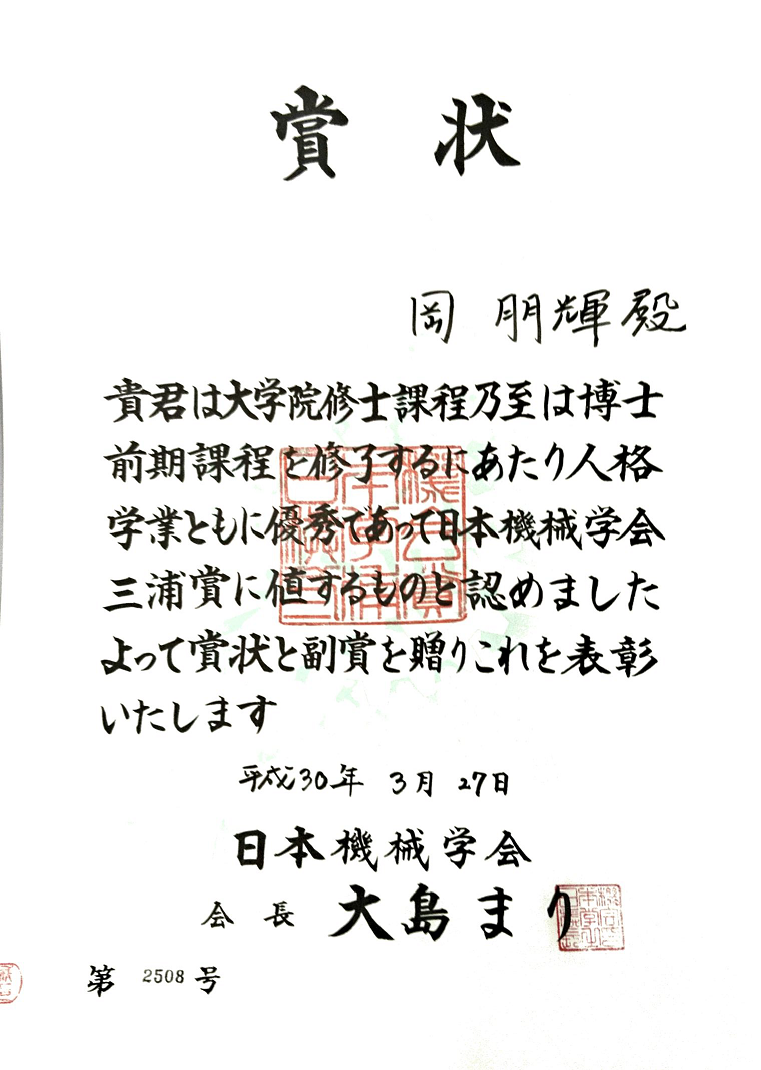 賞状
岡 朋輝殿
貴君は大学院修士課程乃至は博士
前期課程を修了するにあたり人格
学業ともに優秀であって日本機械学会
三浦賞に値するものと認めました
よって賞状と副賞を贈りこれを表彰
いたします
平成30年 3月 27日
日本機械学会
会長 大島まり
第 2508 号